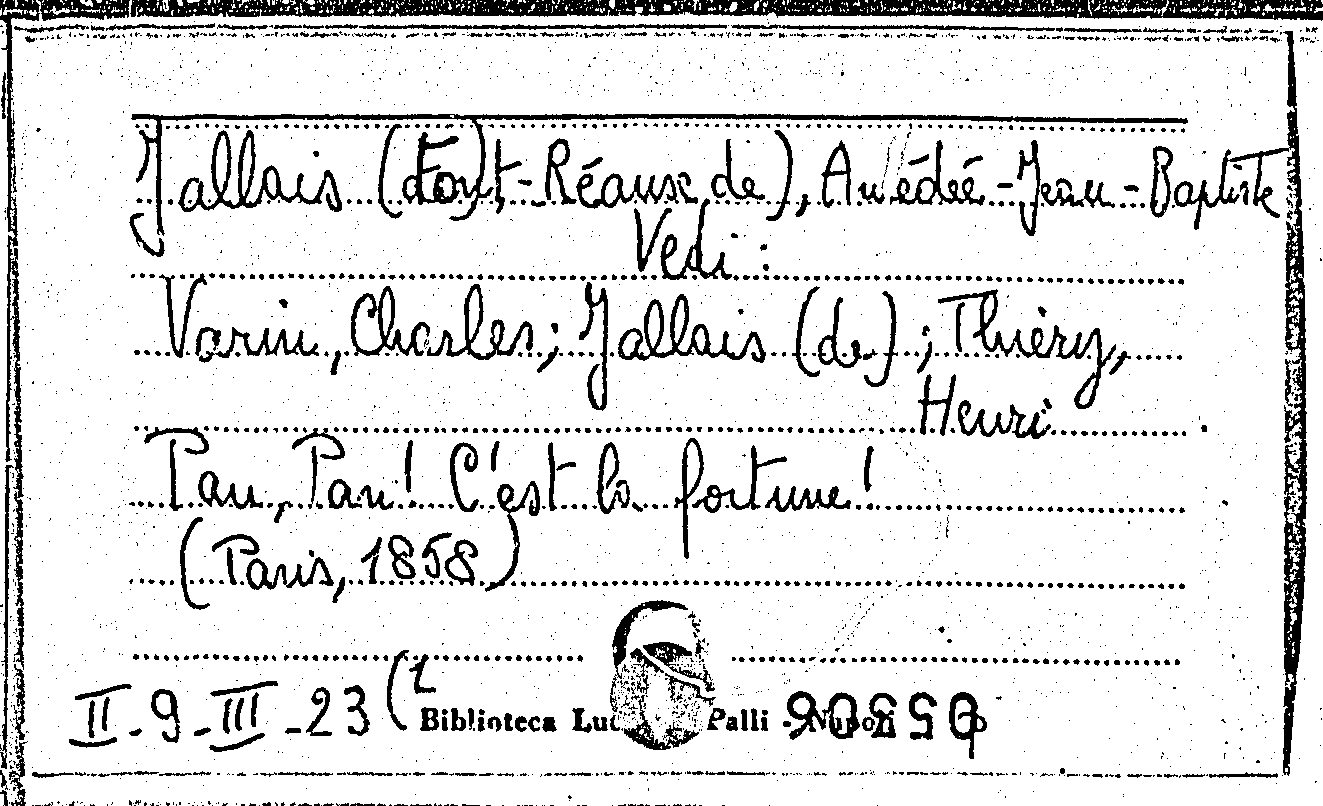 Jallais (Font-Réaux de), Amédée-Jean-Baptiste
Vedi:
Varin, Charles; Jallais (de); Thiéry,
Henri
Pan, Pan! C'est la fortune!
(Paris, 1858)
II-9-III-23(1
Biblioteca Palli - Napoli